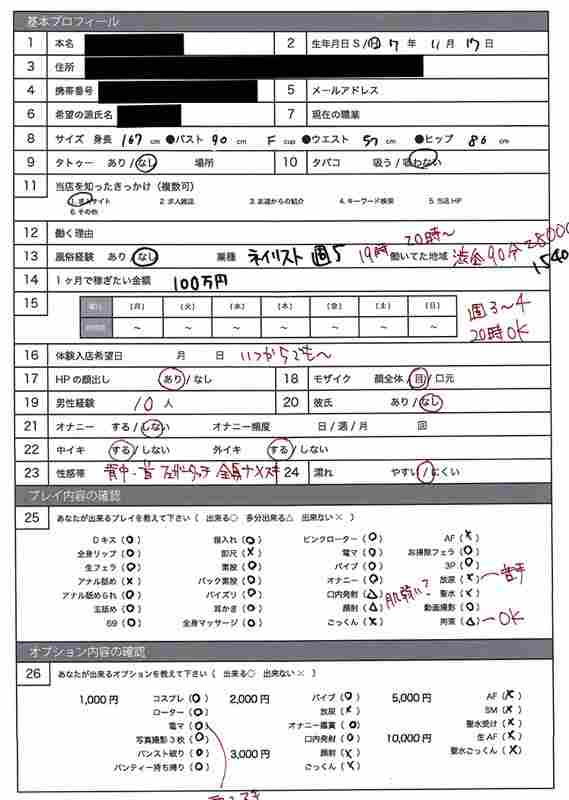 基本プロフィール
1 本名 2 生年月日 S / H 年 11月 17日
3 住所
4 携帯番号 5 メールアドレス
6 希望の源氏名 7 現在の職業
8 サイズ 身長 167 cm ●バスト 90 cm F cup ●ウエスト 57 cm ●ヒップ 86 cm
9 タトゥー あり / なし 場所 10 タバコ 吸う / 吸わない
11 当店を知ったきっかけ (複数可)
1. 求人サイト 2. 求人雑誌 3. 友達からの紹介 4. キーワード検索 5. 当店HP
6. その他
12 働く理由
13 風俗経験 あり / なし 業種 ネイリスト 週5 19時 20時〜 働いてた地域 渋谷 90分 28000
14 1ヶ月で稼ぎたい金額 100万円
15 [月] [火] [水] [木] [金] [土] [日]
〜 〜 〜 〜 〜 〜 〜
週3〜4
20時OK
16 体験入店希望日 月 日 いつからでも〜
17 HPの顔出し あり / なし 18 モザイク 顔全体 / 目 / 口元
19 男性経験 10 人 20 彼氏 あり / なし
21 オナニー する / しない オナニー頻度 日 / 週 / 月 回
22 中イキ する / しない 外イキ する / しない
23 性感帯 背中・首 フェザータッチ 24 濡れ やすい / にくい
プレイ内容の確認
25 あなたが出来るプレイを教えて下さい ( 出来る○ 多分出来る△ 出来ない× )
Dキス (○) 指入れ (○) ピンクローター (○) AF (×)
全身リップ (○) 即尺 (×) 電マ (○) お掃除フェラ (○)
生フェラ (○) 素股 (○) バイブ (○) 3P (○)
アナル舐め (×) バック素股 (○) オナニー (○) 放尿 (×) 〜苦手
アナル舐められ (○) パイズリ (○) 口内発射 (△) 聖水 (×)
玉舐め (○) 耳かき (○) 顔射 (△) 動画撮影 (○)
69 (○) 全身マッサージ (○) ごっくん (×) 拘束 (△) 〜OK
肌弱い?
オプション内容の確認
26 あなたが出来るオプションを教えて下さい ( 出来る○ 出来ない× )
1,000円 コスプレ (○) 2,000円 バイブ (○) 5,000円 AF (×)
ローター (○) 放尿 (×) SM (×)
電マ (○) オナニー鑑賞 (○) 聖水受け (×)
写真撮影3枚 (○) 口内発射 (○) 10,000円 生AF (×)
パンスト破り (○) 3,000円 顔射 (×) 聖水ごっくん (×)
パンティー持ち帰り (○) ごっくん (×)